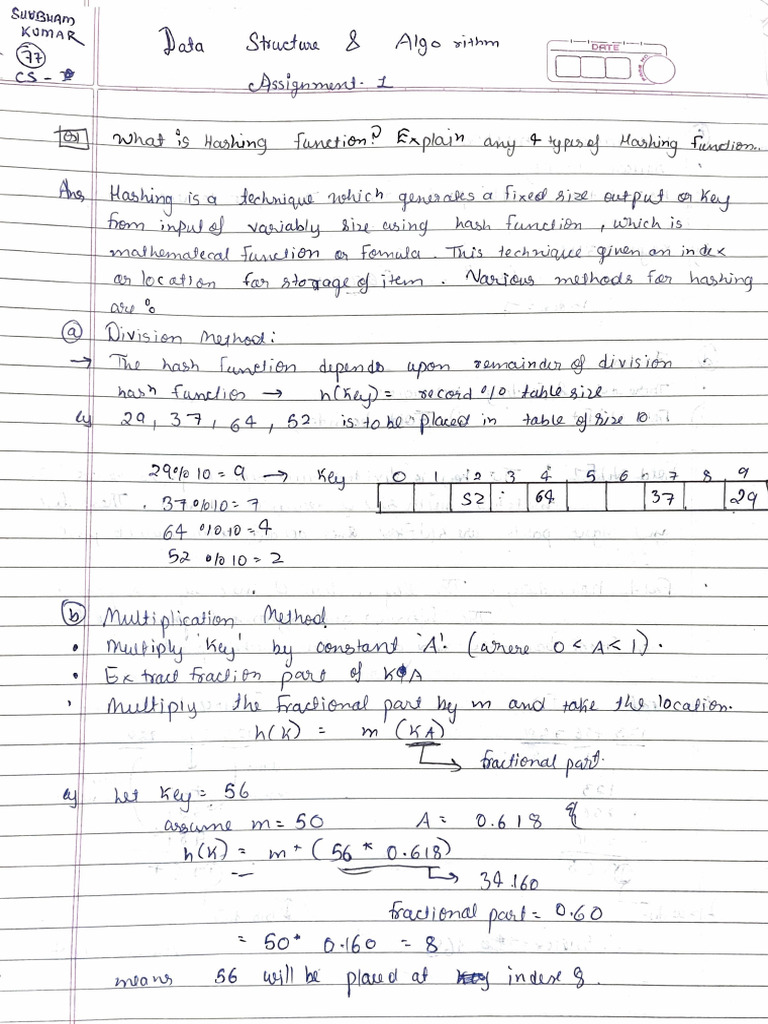 SUBBHAM
KUMAR
77
CS -
Data Structure & Algorithm
DATE
PAGE NO.
Assignment. 1
Q1 What is Hashing function? Explain any 4 types of Hashing function.
Ans Hashing is a technique which generates a fixed size output or Key
from input of variably size using hash function, which is
mathematecal function or fomula. This technique given an index
or location for storage of item. Various methods for hashing
are :
(a) Division Method:
→ The hash function depends upon remainder of division
hash function → h(Key) = record % table size
eg 29, 37, 64, 52 is to be placed in table of size 10
29%10 = 9 → Key 0 1 2 3 4 5 6 7 8 9
37%10 = 7 52 64 37 29
64 %10 = 4
52 %10 = 2
(b) Multiplication Method
• Multiply 'Key' by constant 'A'. (where 0 < A < 1).
• Extract fraction part of K A
• Multiply the fractional part by m and take the location.
h(K) = m (KA)
↳ fractional part.
eg Let Key = 56
assume m = 50 A = 0.618
h(K) = m * (56 * 0.618)
↳ 34.160
fractional part = 0.60
= 50* 0.160 = 8
means 56 will be placed at index 8.